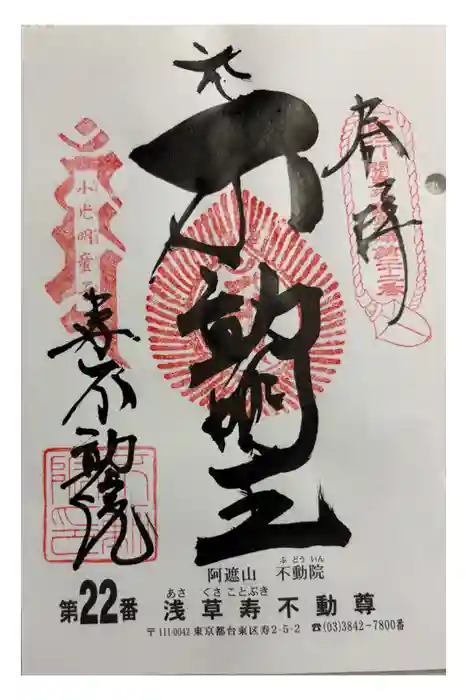 奉拝
不動明王
小光明童子
寿不動院
阿遮山　不動院
ふどういん
あさくさことぶき
第22番　浅草寿不動尊
〒111-0042 東京都台東区寿2-5-2　☎(03)3842-7800番